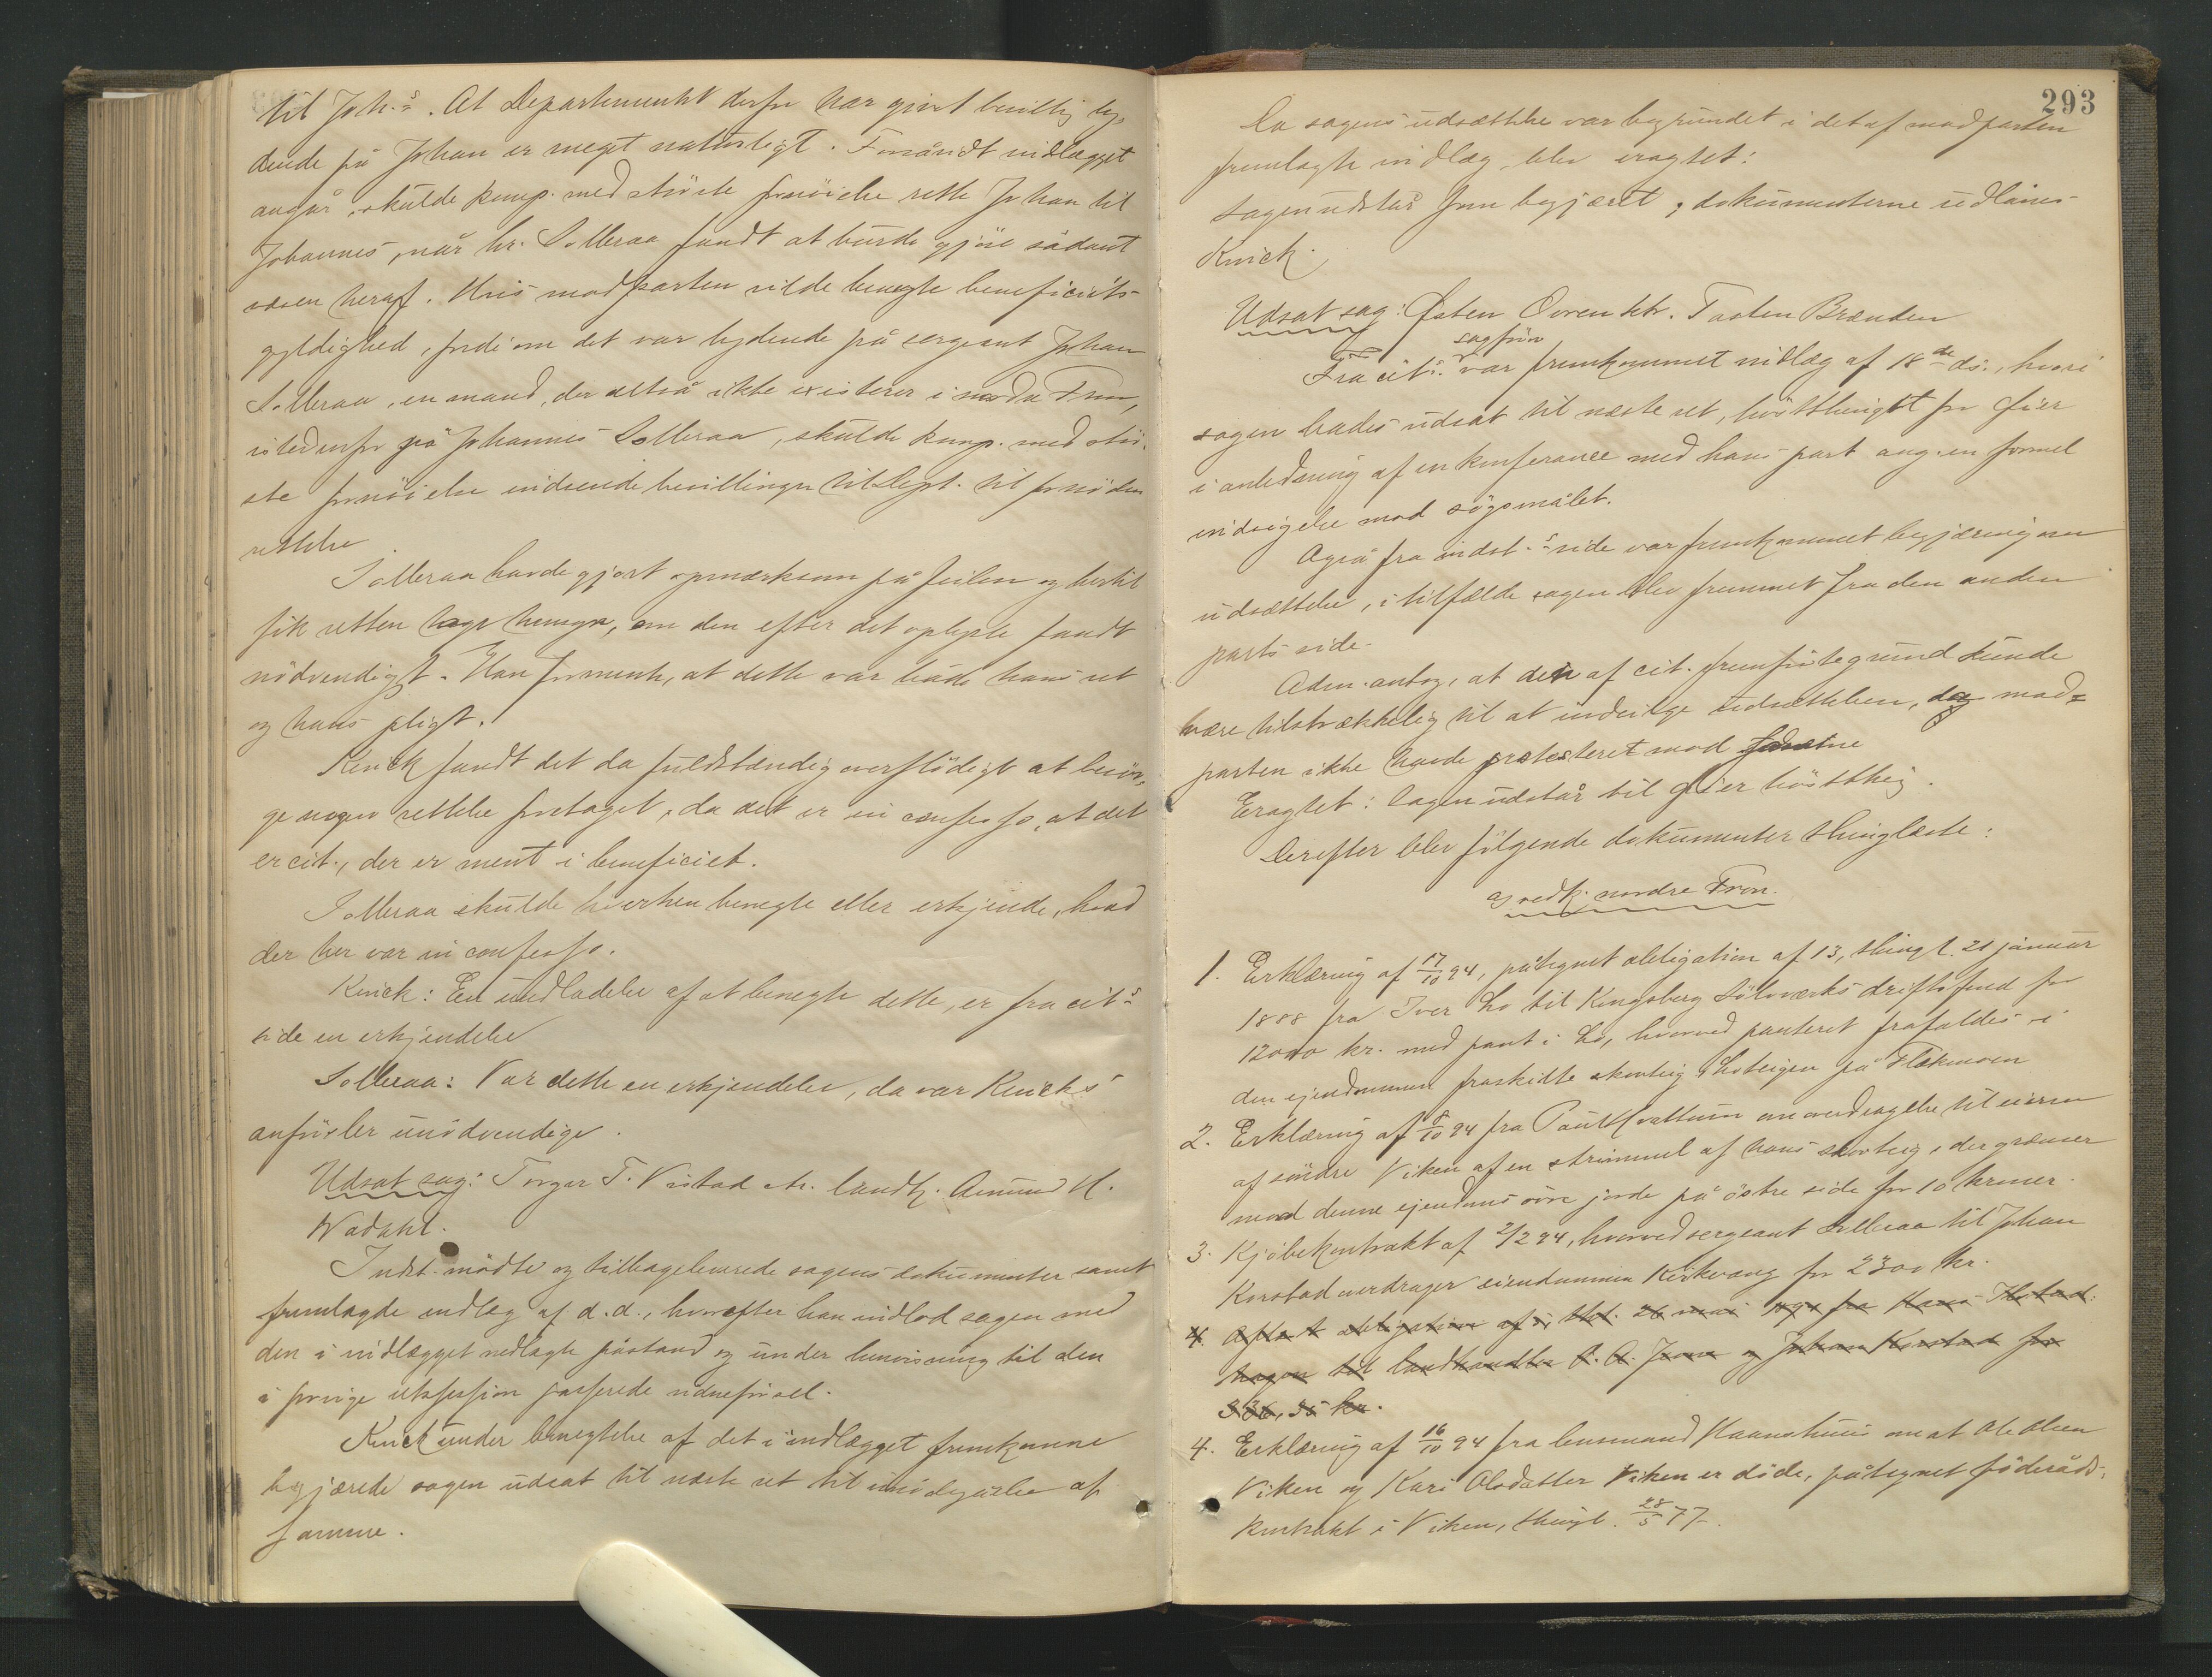 til Joh.s. At Departementet derfor har gjort bevillig ly-
dende på Johan er meget naturligt. Forsåvidt indlægget
angår, skulde komp. med største fornöielse rette Johan til
Johannes, når hr. Solleraa fandt at burde gjöre sådant
væsen heraf. Hvis modparten vilde benegte beneficiets
gyldighed, fordi om det var lydende på sergeant Johan
Solleraa, en mand, der altså ikke existerer i nordre Fron,
istedenfor på Johannes Solleraa, skulde komp. med stör-
ste fornöielse indsende bevillingen til Dept. til fornöden
rettelse.
Solleraa havde gjort opmærksom på feilen og hertil
fik retten tage hensyn, om den efter det oplyste fandt
nödvendigt. Han formente, at dette var både hans ret
og hans pligt.
Kinck fandt det da fuldstændig overflödigt at besör-
ge nogen rettelse foretaget, da det er in confesso, at det
er cit., der er ment i beneficiet.
Solleraa skulde hverken benegte eller erkjende, hvad
der her var in confesso.
Kinck: En undladelse af at benegte dette, er fra cit.s
side en erkjendelse
Solleraa: Var dette en erkjendelse, da var Kincks
anförsler unödvendige.
Udsat sag: Torger T. Vistad ctr. landh. Amund H.
Wadahl.
Indst. mödte og tilbageleverede sagens dokumenter samt
fremlagde indlæg af d.d., hvorefter han indlod sagen med
den i indlægget nedlagte påstand og under henvisning til den
i forrige retssession passerede vidneförsel.
Kinck under benegtelse af det i indlægget fremkomne
begjærede sagen udsat til næste ret til imödegåelse af
samme.
293
Da sagens udsættelse var begrundet i det af modparten
fremlagte indlæg blev eragtet:
Sagen udstår som begjæret, dokumenterne udlånes
Kinck.
Udsat sag: Østen Ovren ctr. Torsten Brænden
Fra cit.s sagförer var fremkommet indlæg af 18de ds., hvori
sagen bades udsat til næste ret, hösttinget for Øier
i anledning af en konferance med hans part ang. en formel
indsigelse mod sögsmålet.
Også fra indst.s side var fremkommet begjæring om
udsættelse, i tilfælde sagen blev fremmet fra den anden
parts side.
Adm. antog, at den af cit. fremförte grund kunde
være tilstrækkelig til at indvilge udsættelsen, da mod-
parten ikke havde protesteret mod samme
Eragtet: Sagen udstår til Øier höstthing.
Derefter blev fölgende dokumenter thinglæste:
a, vedk. nordre Fron.
1. Erklæring af 17/10 94, påtegnet obligation af 13, thingl. 21 januar
1888 fra Iver Lo til Kongsberg Sölvværks driftsfond for
12000 kr. med pant i Lo, hvorved panteret frafaldes i
den ejendommen fraskilte skovteig Loteigen på Flåkmoen
2. Erklæring af 8/10 94 fra Paul Hvattum om overdragelse til eieren
af söndre Viken af en strimmel af hans skovteig, der grænser
mod denne ejendoms övre jorde på östre side for 10 kroner.
3. Kjöbekontrakt af 2/2 94, hvorved sergeant Solleraa til Johan
Korstad overdrager eiendommen Kirkevang for 2300 kr.
4. Aflæst obligation af 5, thl. 26 mai 1894 fra Hans Thostad-
hagen til landhandler P. A. Jevne og Johan Korstad for
336,35 kr.
4. Erklæring af 16/10 94 fra lensmand Kaurstuen om at Ole Olsen
Viken og Kari Olsdatter Viken er döde, påtegnet föderåds-
kontrakt i Viken, thingl. 28/5 77.